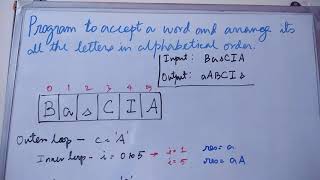 Program to accept a word and arrange its
all the letters in alphabetical order.
Input: BasCIA
Output: aABCIs
0 1 2 3 4 5
B a s C I A
Outer loop - c = 'A'
Inner loop - i = 0 to 5 → i = 1 res = a
i = 5 res = aA